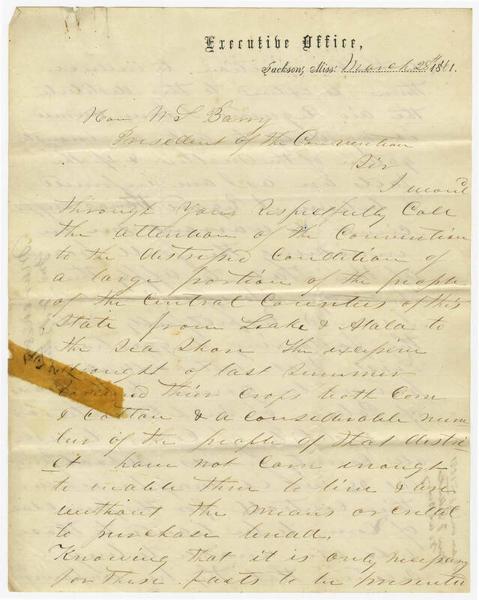 Executive Office,
Jackson, Miss: March 28th 1861.
Hon W S Barry
President of the Convention
Sir
I would
through you respectfully Call
the attention of the Convention
to the distressed Condition of
a large portion of the people
of the Central Counties of this
State from Leake & Atala to
the Sea Shore The excessive
drought of last Summer
their Crops both Corn
& Cotton & a considerable num
ber of the people of that distri
ct have not Corn enough
to enable them to live & are
without the means or credit
to purchase bread.
Knowing that it is only necessary
for these facts to be presented